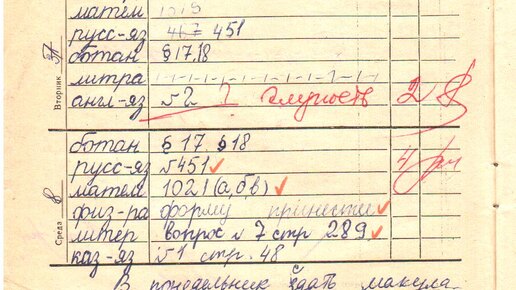 матем 1015
русс-яз 467 451
Вторник 7
ботан § 17,18
литра -----------
англ-яз № 2 ? Глупость 2
ботан § 17 § 18
русс-яз № 451
матем 1021 (а,б,в)
физ-ра форму принести
Среда 8
литер вопрос № 7 стр 289
каз-яз № 1 стр. 48
В понедельник сдать макула